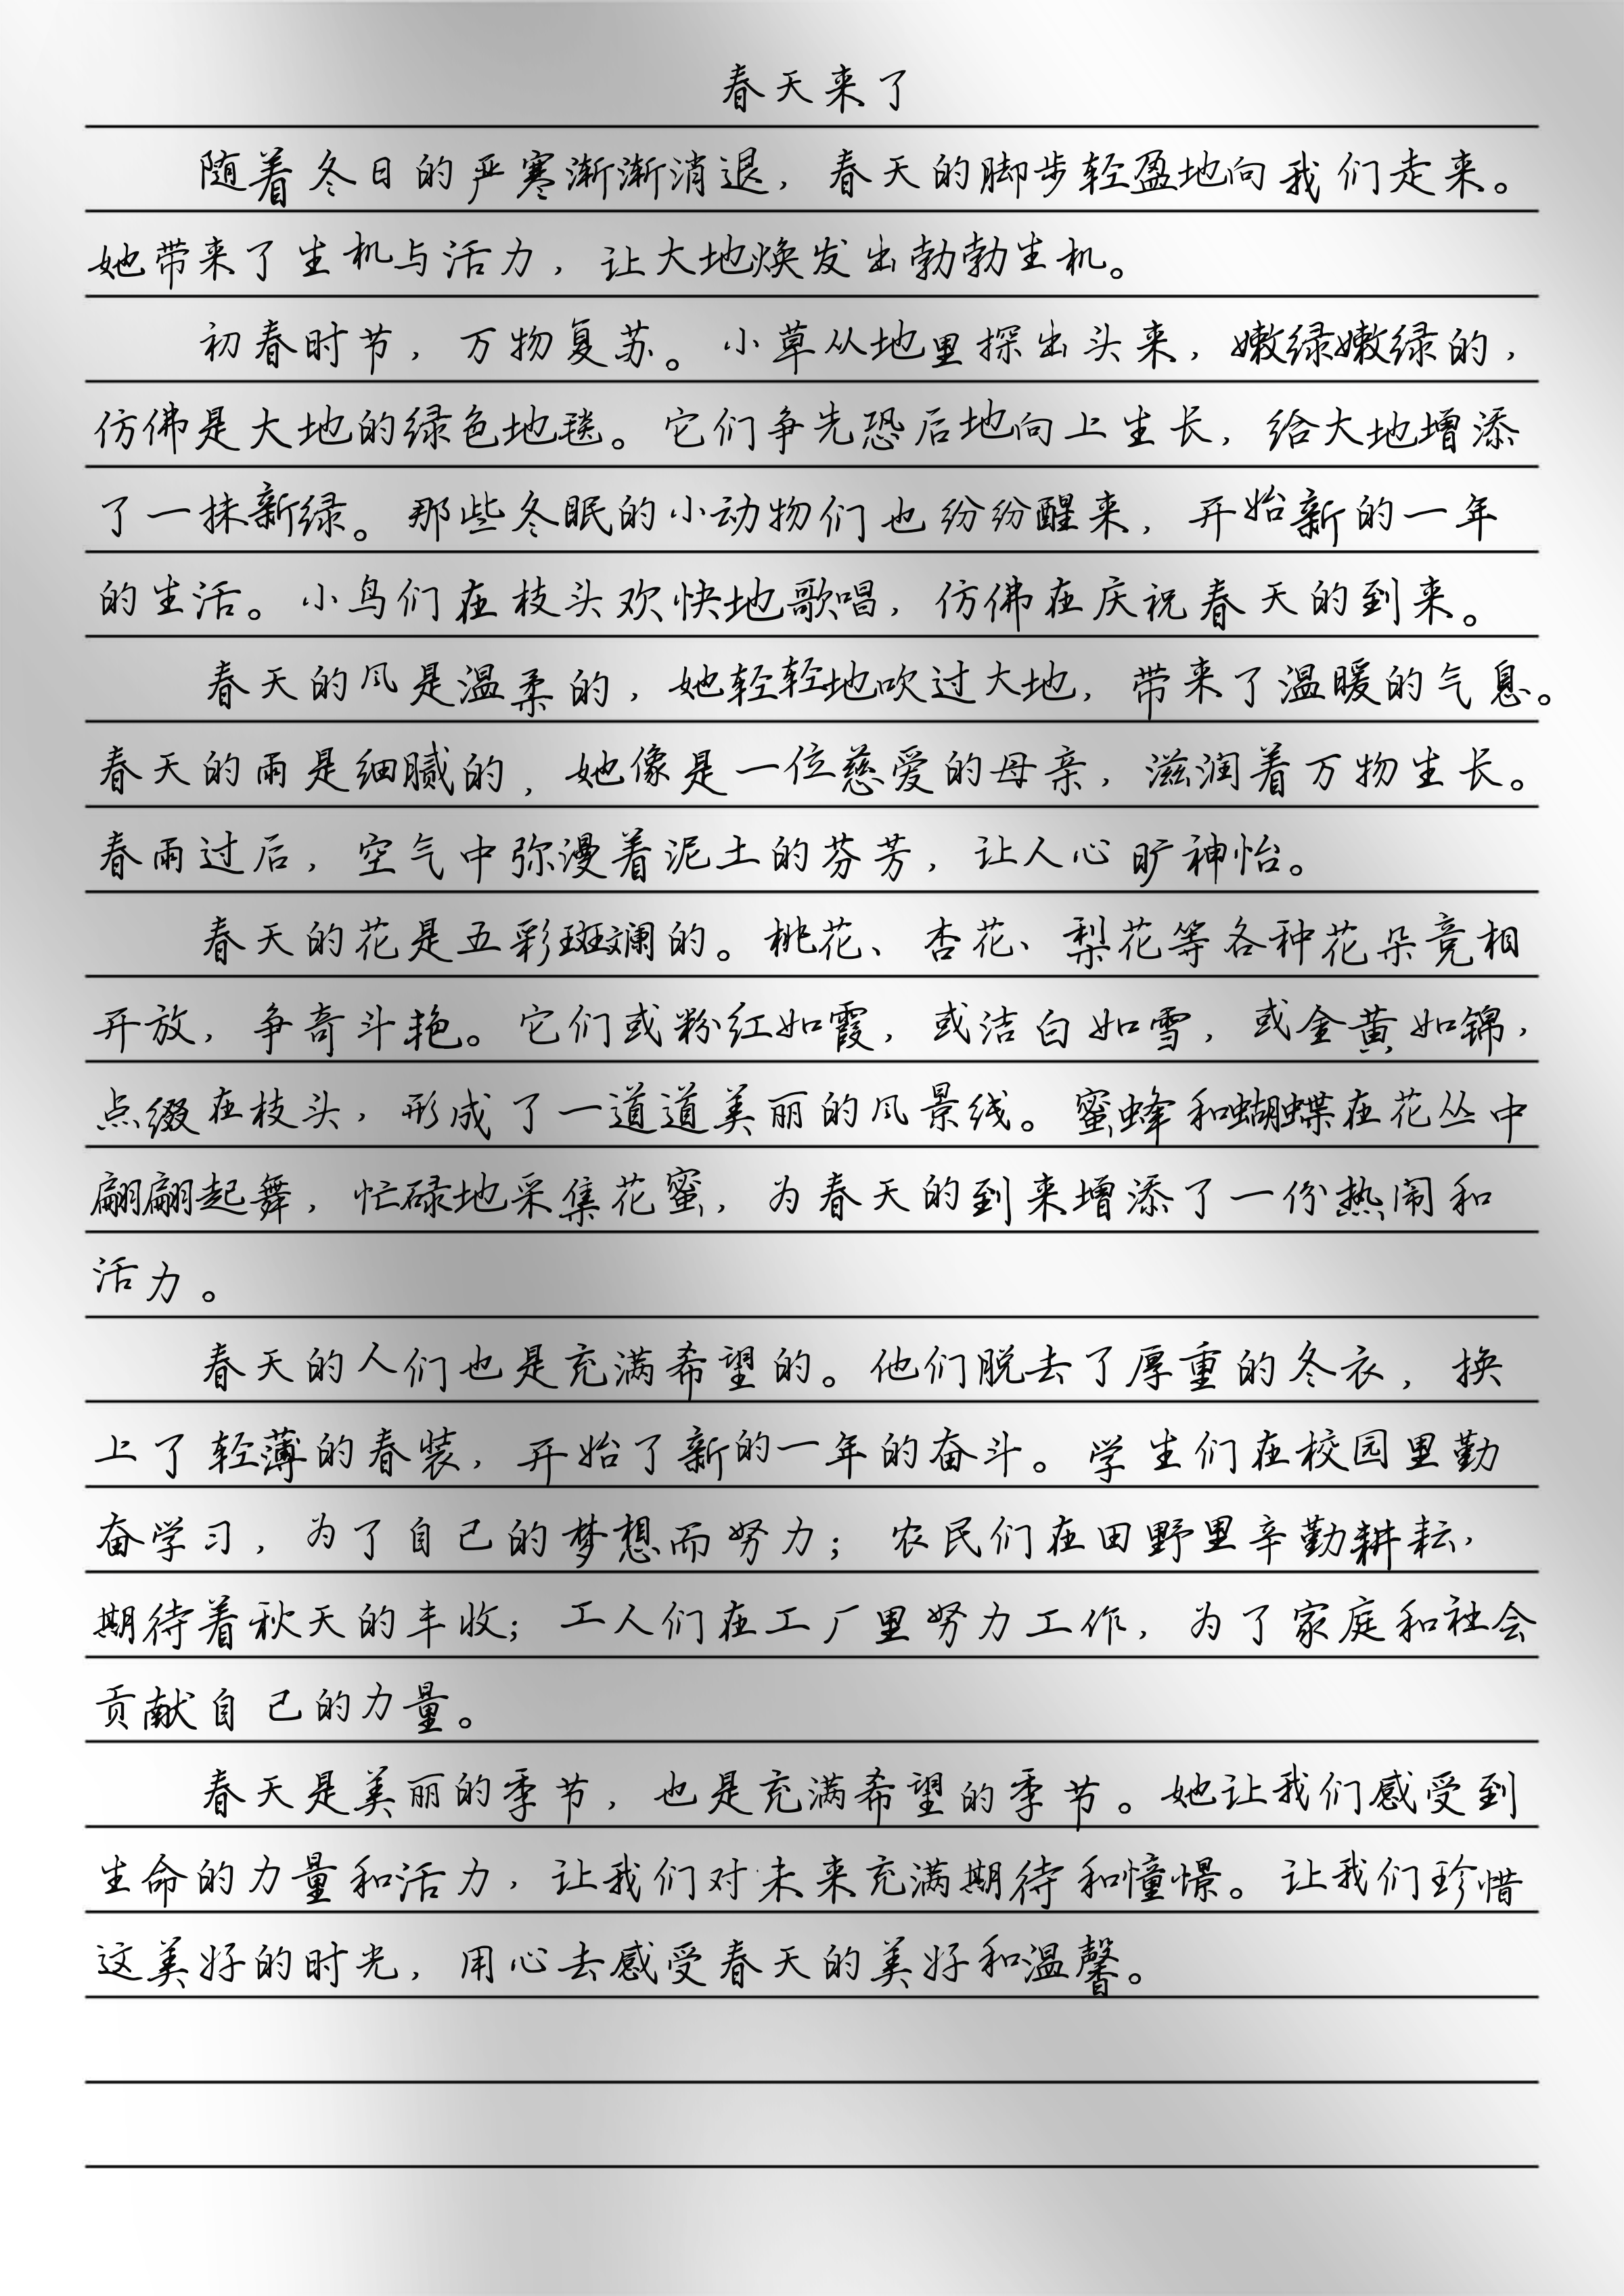 春天来了
随着冬日的严寒渐渐消退，春天的脚步轻盈地向我们走来。
她带来了生机与活力，让大地焕发出勃勃生机。
初春时节，万物复苏。小草从地里探出头来，嫩绿嫩绿的，
仿佛是大地的绿色地毯。它们争先恐后地向上生长，给大地增添
了一抹新绿。那些冬眠的小动物们也纷纷醒来，开始新的一年
的生活。小鸟们在枝头欢快地歌唱，仿佛在庆祝春天的到来。
春天的风是温柔的，她轻轻地吹过大地，带来了温暖的气息。
春天的雨是细腻的，她像是一位慈爱的母亲，滋润着万物生长。
春雨过后，空气中弥漫着泥土的芬芳，让人心旷神怡。
春天的花是五彩斑斓的。桃花、杏花、梨花等各种花朵竞相
开放，争奇斗艳。它们或粉红如霞，或洁白如雪，或金黄如锦，
点缀在枝头，形成了一道道美丽的风景线。蜜蜂和蝴蝶在花丛中
翩翩起舞，忙碌地采集花蜜，为春天的到来增添了一份热闹和
活力。
春天的人们也是充满希望的。他们脱去了厚重的冬衣，换
上了轻薄的春装，开始了新的一年的奋斗。学生们在校园里勤
奋学习，为了自己的梦想而努力；农民们在田野里辛勤耕耘，
期待着秋天的丰收；工人们在工厂里努力工作，为了家庭和社会
贡献自己的力量。
春天是美丽的季节，也是充满希望的季节。她让我们感受到
生命的力量和活力，让我们对未来充满期待和憧憬。让我们珍惜
这美好的时光，用心去感受春天的美好和温馨。